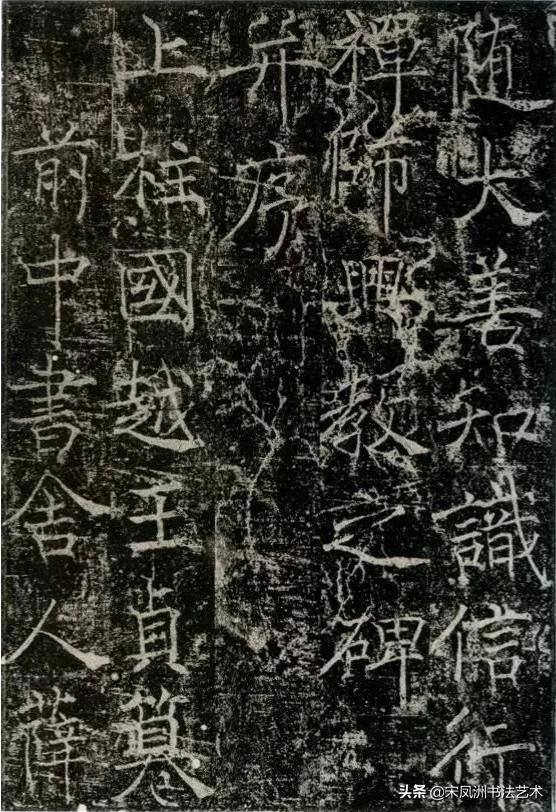 随大善知識信行
禪師興教之碑
并序
上柱國越王貞篹
前中書舍人薛
头条@宋凤洲书法艺术